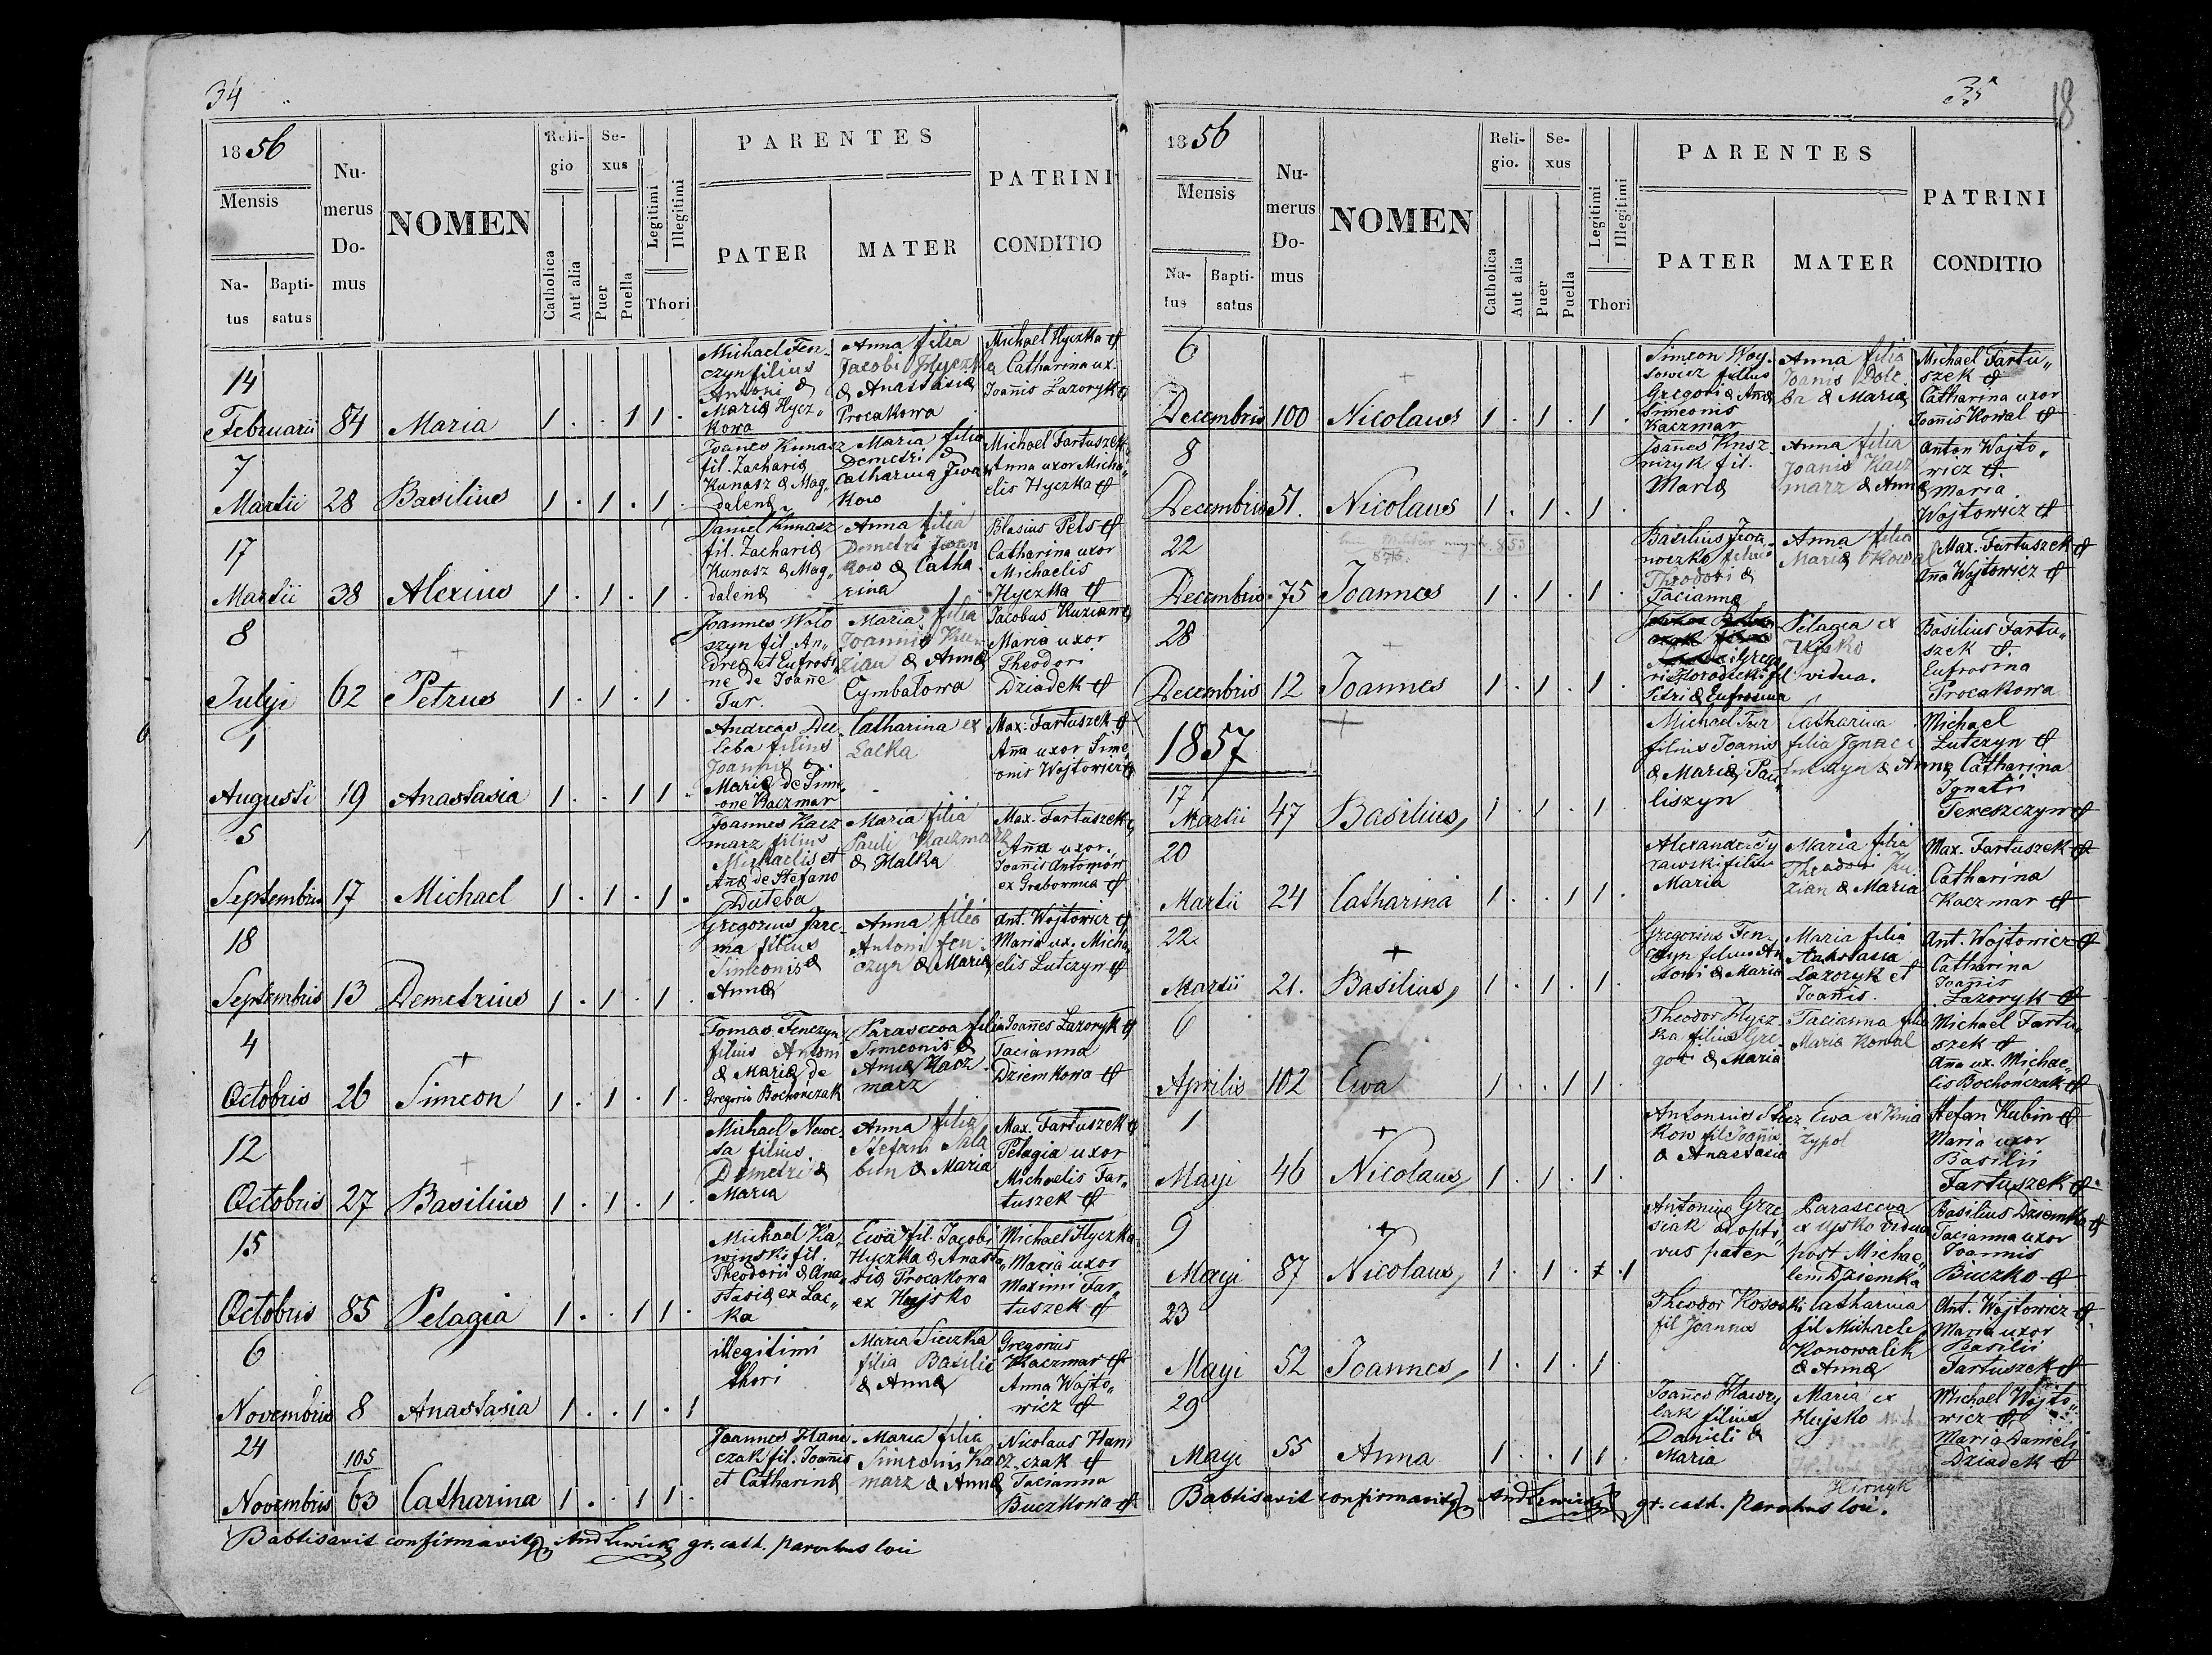 34
1856
Mensis
Na-
tus
Bapti-
satus
Nu-
merus
Do-
mus
NOMEN
Reli-
gio
Catholica
Aut alia
Se-
xus
Puer
Puella
Legitimi
Illegitimi
Thori
PARENTES
PATER
MATER
PATRINI
CONDITIO
14
Februarii
84
Maria
1 . . 1 1 .
Michael Fen-
czyn filius
Antoni &
Mariæ Hycz„
kowa
Anna filia
Jacobi Hyczka
& Anastasiæ
Procakowa
Michael Hyczka &
Catharina ux.
Joañis Lazoryk
7
Martii
28
Basilius
1 . 1 . 1 .
Joanes Kunasz
fil. Zachariæ
Kunasz & Mag„
dalenæ
Maria filia
Demetri &
Catharinæ Iwan
kow
Michael Fartuszek
Anna uxor Micha„
elis Hyczka
17
Martii
38
Alexius
1 . 1 . 1 .
Daniel Kunasz
fil. Zachariæ
Kunasz & Mag„
dalenæ
Anna filia
Demetri Iwan
kow & Catha
rina
Blasius Pels
Catharina uxor
Michaelis
Hyczka
8
Julyi
62
Petrus
1 . 1 . 1 .
Joannes Wolo
szyn fil. An„
dreæ et Eufrosi
ne de Joañe
Tur.
Maria filia
Joannis Ku„
zian & Annæ
Cymbalowa
Jacobus Kuzian
Maria uxor
Theodori
Dziadek
1
Augusti
19
Anastasia
1 . . 1 1 .
Andreas Du
leba filius
Joannis &
Mariæ de Sime
one Kaczmar
Catharina ex
Lacka
Max. Fartuszek
Aña uxor Sime
onis Wojtowicz
5
Septembris
17
Michael
1 . 1 . 1 .
Joannes Kacz
marz filius
Michaelis et
Añæ de Stefano
Duleba
Maria filia
Pauli Kaczmarz
& Halka
Max. Fartuszek
Aña uxor
Joañis Antonów
ex Grabownica
18
Septembris
13
Demetrius
1 . 1 . 1 .
Gregorius Jare-
ma filius
Simeonis &
Annæ
Anna filia
Antoni Fen
czyn & Mariæ
Ant. Wojtowicz
Maria ux. Micha
elis Lutczyn
4
Octobris
26
Simeon
1 . 1 . 1 .
Tomas Fenczyn
filius Antoni
& Mariæ de
Gregorio Bochończak
Parasceva filia
Simeonis &
Annæ Kacz
marz
Joañes Lazoryk
Tacianna
Dziemkowa
12
Octobris
27
Basilius
1 . 1 . 1 .
Michael
filius
Demetri &
Maria
Anna filia
Stefani
& Maria
Max. Fartuszek
Pelagia uxor
Michaelis Far„
tuszek
15
Octobris
85
Pelagia
1 . . 1 1 .
Michael Ka„
winski fil.
Theodorii & Ana„
stasiæ ex Lac„
ka
Ewa fil. Jacobi
Hyczka & Anasta
siæ Procakowa
ex Hujsko
Michael Hyczka
Maria uxor
Maximi Far„
tuszek
6
Novembris
8
Anastasia
1 . . 1 . 1
illegitimi
thori
Maria Sieczka
filia Basilii
& Annæ
Gregorius
Kaczmar
Anna Wojto„
wicz
24
Novembris
105
63
Catharina
1 . . 1 1 .
Joannes Hani
czak fil. Joañis
et Catharinæ
Maria filia
Simeonis Kacz
marz & Annæ
Nicolaus Hani
czak
Tacianna
Buczkowa
Babtisavit confirmavitq gr. cath. parochus loci
35
18
1856
Mensis
Na-
tus
Bapti-
satus
Nu-
merus
Do-
mus
NOMEN
Reli-
gio.
Catholica
Aut alia
Se-
xus
Puer
Puella
Legitimi
Illegitimi
Thori
PARENTES
PATER
MATER
PATRINI
CONDITIO
6
Decembris
100
Nicolaus
1 . 1 . 1 .
Simeon Woj-
towicz filius
Gregori & Añæ
Simeonis
Kaczmar
Anna filia
Joanis Dole
ba & Mariæ
Michael Fartu„
szek &
Catharina uxor
Joañis Kowal
8
Decembris
51.
Nicolaus
1 . 1 . 1 .
Joañes Kusz
niryk fil.
Mariæ
Anna filia
Joanis Kacz
marz & Annæ
Anton Wojto„
wicz &
Maria
Wojtowicz
22
Decembris
75
Joannes
1 . 1 . 1 .
Basilius Iwa
noczko filius
Theodori &
Tacianna
Anna filia
Mariæ Kowal
Max. Fartuszek
Aña Wojtowicz
28
Decembris
12
Joannes
1 . 1 . 1 .
Petri & Eufrosina
Pelagia ex
Ujsko
vidua.
Basilius Fartu„
szek &
Eufrosina
Procakowa
1857
17
Martii
47
Basilius
1 . 1 . 1 .
Michael Tur
filius Joanis
& Mariæ Pau„
liszyn
Catharina
filia Ignaci
Lutczyn & Annæ
Michael
Lutczyn &
Catharina
Ignatii
Tereszczyn
20
Martii
24
Catharina
1 . . 1 1 .
Alexander Ty
rawski filius
Maria
Maria filia
Theodori Ku
zian & Maria
Max. Fartuszek
Catharina
Kaczmar
22
Martii
21.
Basilius
1 . 1 . 1 .
Gregorius Fen
czyn filius An
toni & Maria
Maria filia
Anastasia
Lazoryk et
Joañis.
Ant. Wojtowicz
Catharina
Joañis
Lazoryk
6
Aprilis
102
Ewa
1 . . 1 1 .
Theodor Hycz
ka filius Gre
gori & Maria
Tacianna filia
Mariæ Kowal
Michael Fartu„
szek &
Aña ux. Michae„
lis Bochończak
1
Mayi
46
Nicolaus
1 . 1 . 1 .
Antonius
kow fil Joañis
& Anastasia
Ewa ex Knia
zypol
Stefan Kubin
Maria uxor
Basilii
Fartuszek
9
Mayi
87
Nicolaus
1 . 1 . 1 . 1
Antonius Grze
siak adopti„
vus pater
Parasceva
ex Ujsko vidua
post Michae„
lem Dziemka
Basilius Dziemka
Tacianna uxor
Joannis
Buczko
23
Mayi
52
Joannes
1 . 1 . 1 .
Theodor Kosowski
fil Joannes
Catharina
fil Michaele
Konowalik
& Annæ
Ant. Wojtowicz
Maria uxor
Basilii
Fartuszek
29
Mayi
55
Anna
1 . . 1 1 .
Joañes Hawry
lak filius
Danieli &
Maria
Maria ex
Hujsko
Hirnyk
Michael Wojto„
wicz &
Maria Danieli
Dziadek
Babtisavit confirmavitq gr. cath. parochus loci.